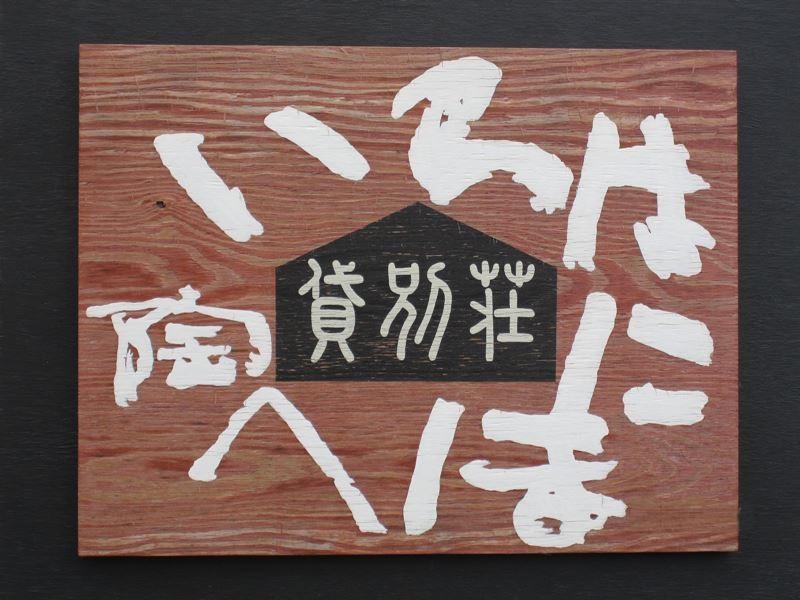 いろはにほへ陶
貸別荘